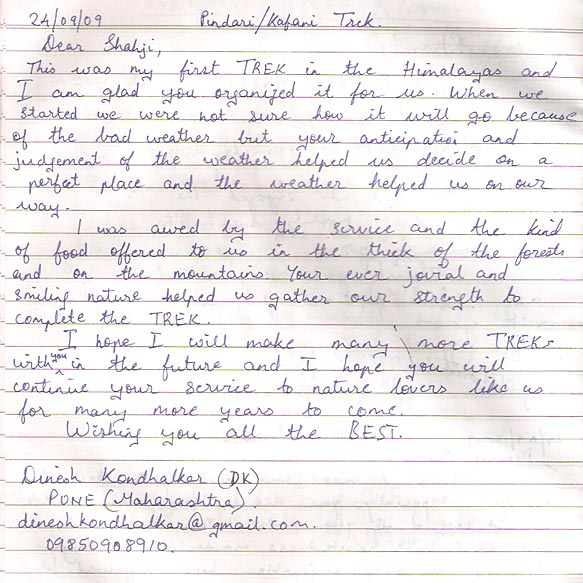 24/09/09 Pindari/Kafani Trek.
Dear Shahji,
This was my first TREK in the Himalayas and
I am glad you organized it for us. When we
started we were not sure how it will go because
of the bad weather but your anticipation and
judgement of the weather helped us decide on a
perfect place and the weather helped us on our
way.
I was awed by the service and the kind
of food offered to us in the thick of the forests
and on the mountains. Your ever jovial and
smiling nature helped us gather our strength to
complete the TREK.
I hope I will make many more TREKs
with you in the future and I hope you will
continue your service to nature lovers like us
for many more years to come.
Wishing you all the BEST.
Dinesh Kondhalkar (DK)
PUNE (Maharashtra).
dineshkondhalkar@gmail.com.
09850908910.